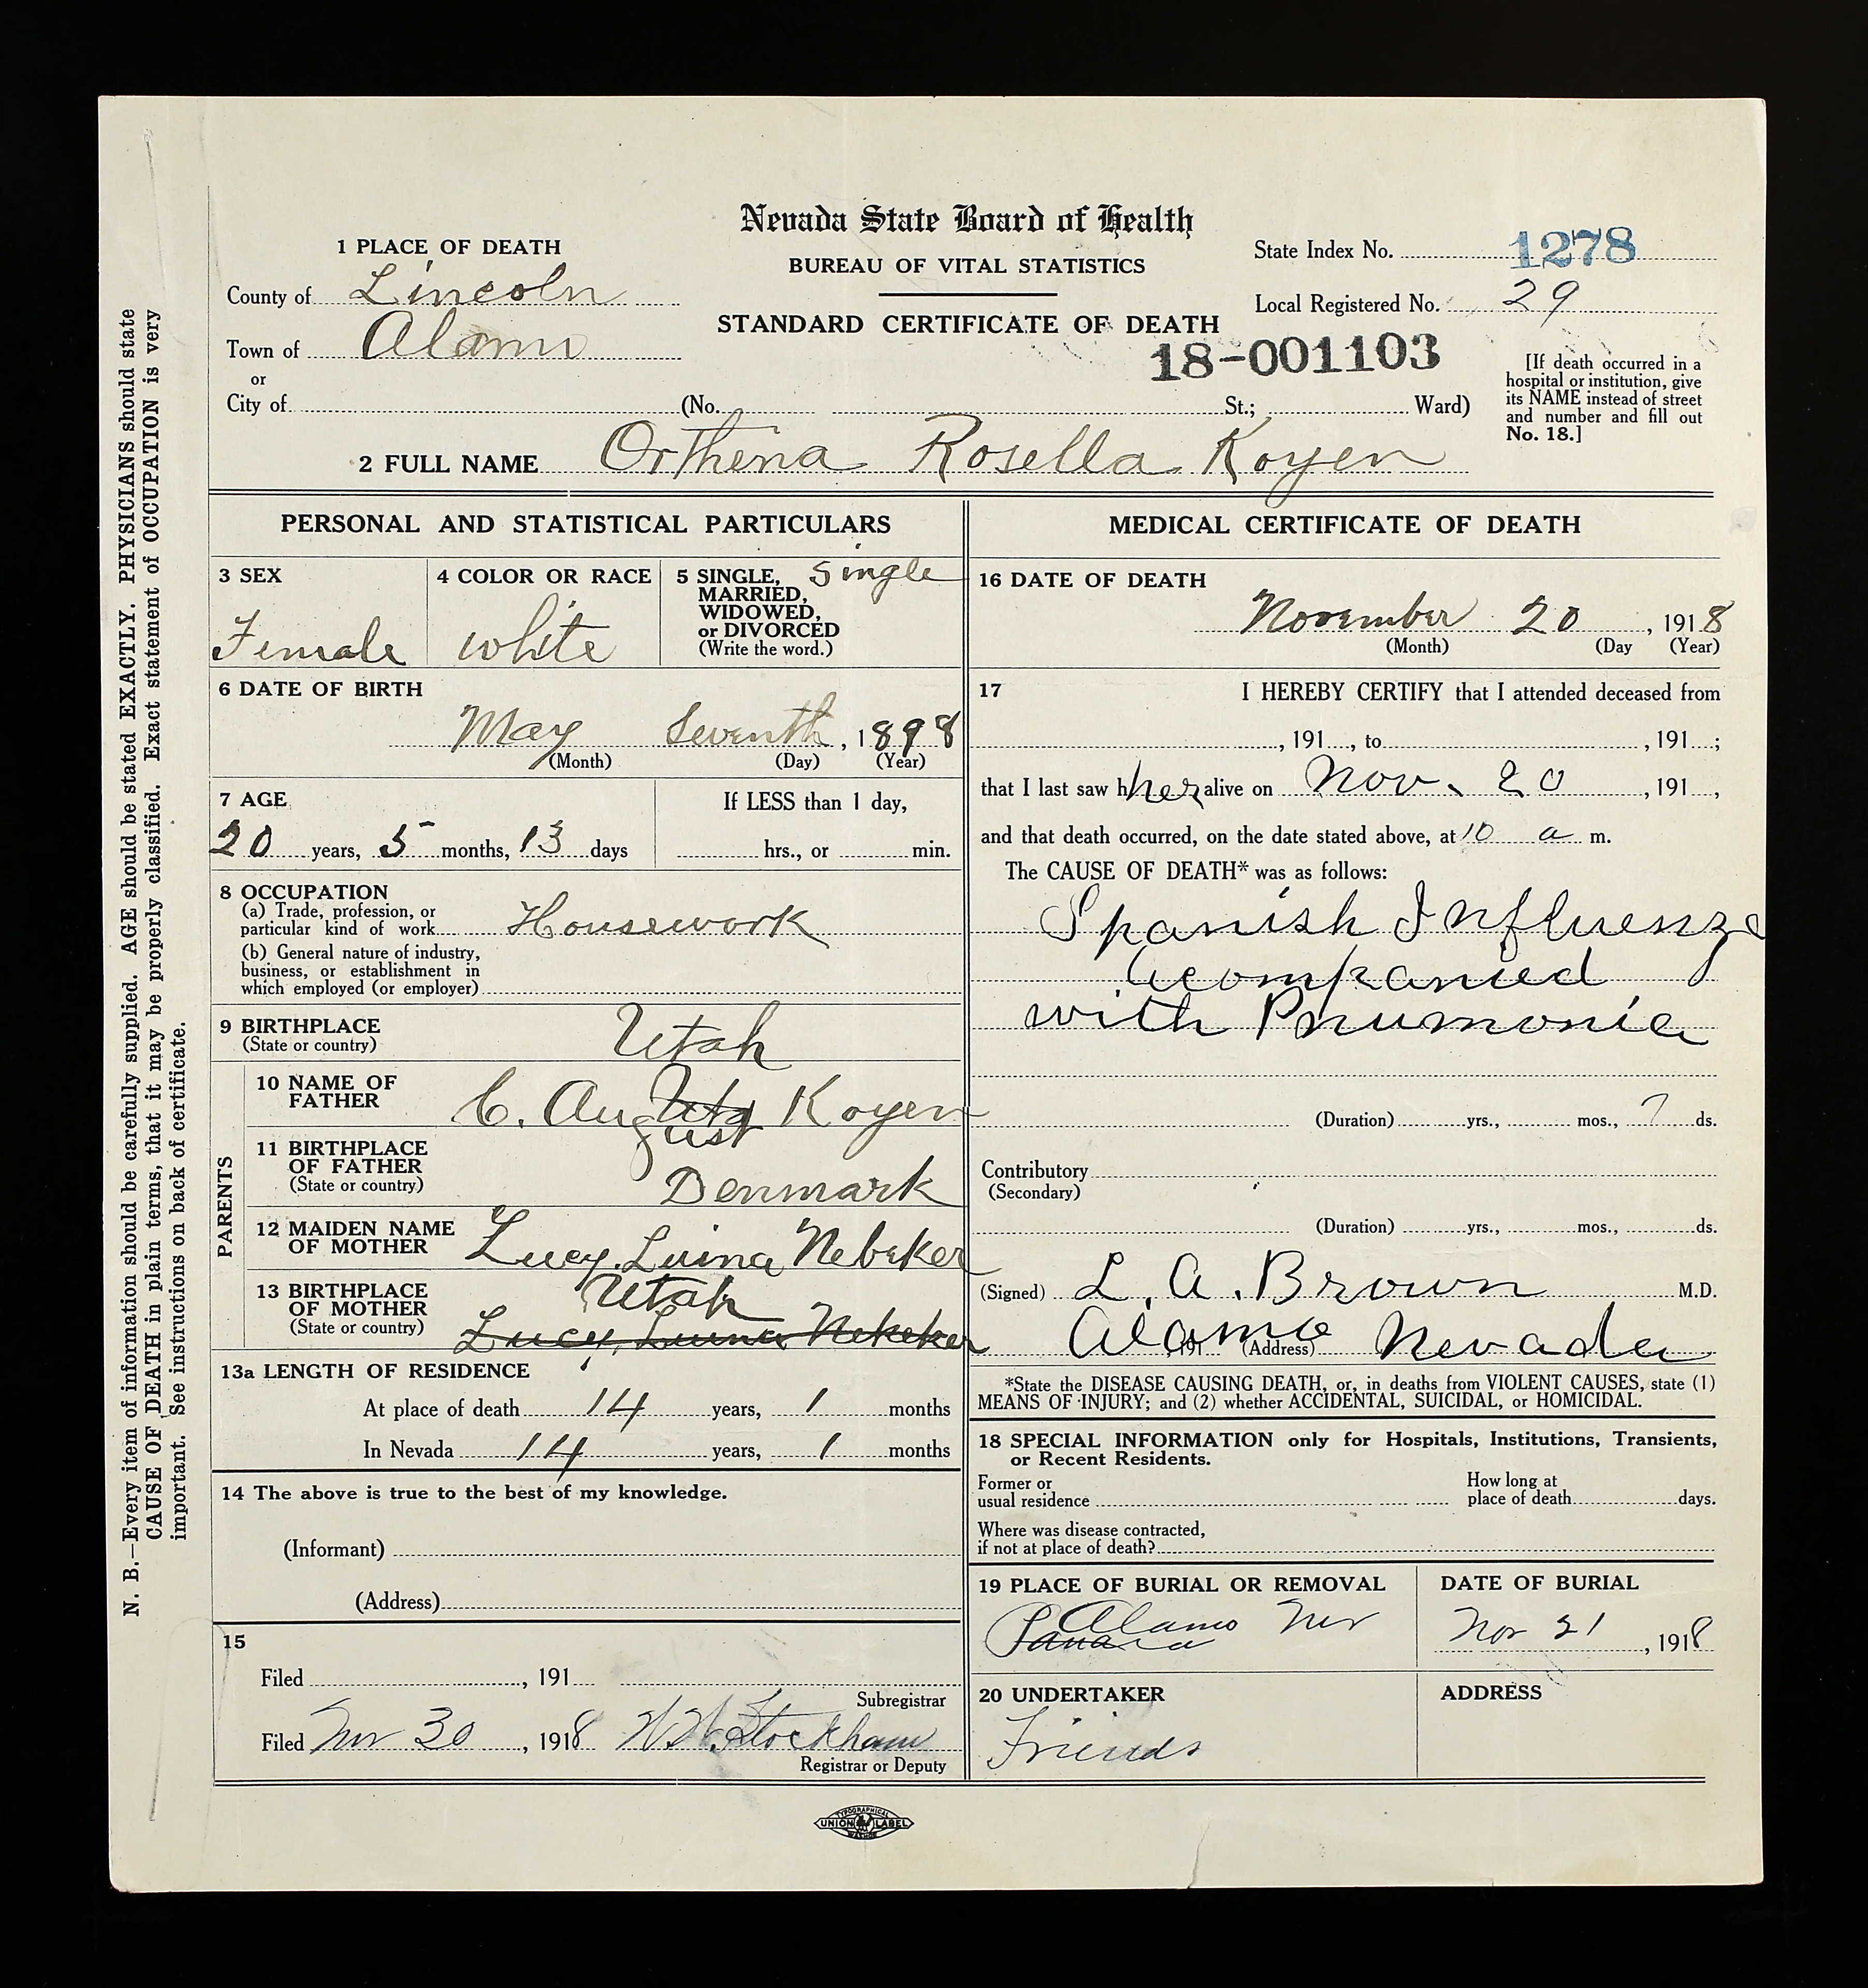 Nevada State Board of Health
BUREAU OF VITAL STATISTICS
STANDARD CERTIFICATE OF DEATH
State Index No. 1278
Local Registered No. 29
18-001103
[If death occurred in a
hospital or institution, give
its NAME instead of street
and number and fill out
No. 18.]
1 PLACE OF DEATH
County of Lincoln
Town of Alamo
or
City of (No. St.; Ward)
2 FULL NAME Orthena Rosella Koyen
PERSONAL AND STATISTICAL PARTICULARS
3 SEX
Female
4 COLOR OR RACE
white
5 SINGLE, single
MARRIED,
WIDOWED,
or DIVORCED
(Write the word.)
6 DATE OF BIRTH
May Seventh, 1898
(Month) (Day) (Year)
7 AGE
20 years, 5 months, 13 days
If LESS than 1 day,
hrs., or min.
8 OCCUPATION
(a) Trade, profession, or
particular kind of work Housework
(b) General nature of industry,
business, or establishment in
which employed (or employer)
9 BIRTHPLACE
(State or country) Utah
PARENTS
10 NAME OF
FATHER C. August Koyen
11 BIRTHPLACE
OF FATHER
(State or country) Denmark
12 MAIDEN NAME
OF MOTHER Lucy Luina Nebeker
13 BIRTHPLACE
OF MOTHER Utah
(State or country) Lucy Luina Nebeker
13a LENGTH OF RESIDENCE
At place of death 14 years, 1 months
In Nevada 14 years, 1 months
14 The above is true to the best of my knowledge.
(Informant)
(Address)
15
Filed , 191
Subregistrar
Filed Nov 30, 1918 Stockham
Registrar or Deputy
MEDICAL CERTIFICATE OF DEATH
16 DATE OF DEATH
November 20, 1918
(Month) (Day (Year)
17 I HEREBY CERTIFY that I attended deceased from
, 191 , to , 191 ;
that I last saw h her alive on Nov. 20 , 191 ,
and that death occurred, on the date stated above, at 10 a m.
The CAUSE OF DEATH* was as follows:
Spanish Influenza
Acompanied
with Pnumonia
(Duration) yrs., mos., 7 ds.
Contributory
(Secondary)
(Duration) yrs., mos., ds.
(Signed) L. A. Brown M.D.
Alamo Nevada
, 191 (Address)
*State the DISEASE CAUSING DEATH, or, in deaths from VIOLENT CAUSES, state (1)
MEANS OF INJURY; and (2) whether ACCIDENTAL, SUICIDAL, or HOMICIDAL.
18 SPECIAL INFORMATION only for Hospitals, Institutions, Transients,
or Recent Residents.
Former or
usual residence
How long at
place of death days.
Where was disease contracted,
if not at place of death?
19 PLACE OF BURIAL OR REMOVAL
Alamo Nev
DATE OF BURIAL
Nov 21, 1918
20 UNDERTAKER
Friends
ADDRESS
N. B.—Every item of information should be carefully supplied. AGE should be stated EXACTLY. PHYSICIANS should state
CAUSE OF DEATH in plain terms, that it may be properly classified. Exact statement of OCCUPATION is very
important. See instructions on back of certificate.
TYPOGRAPHICAL
UNION LABEL